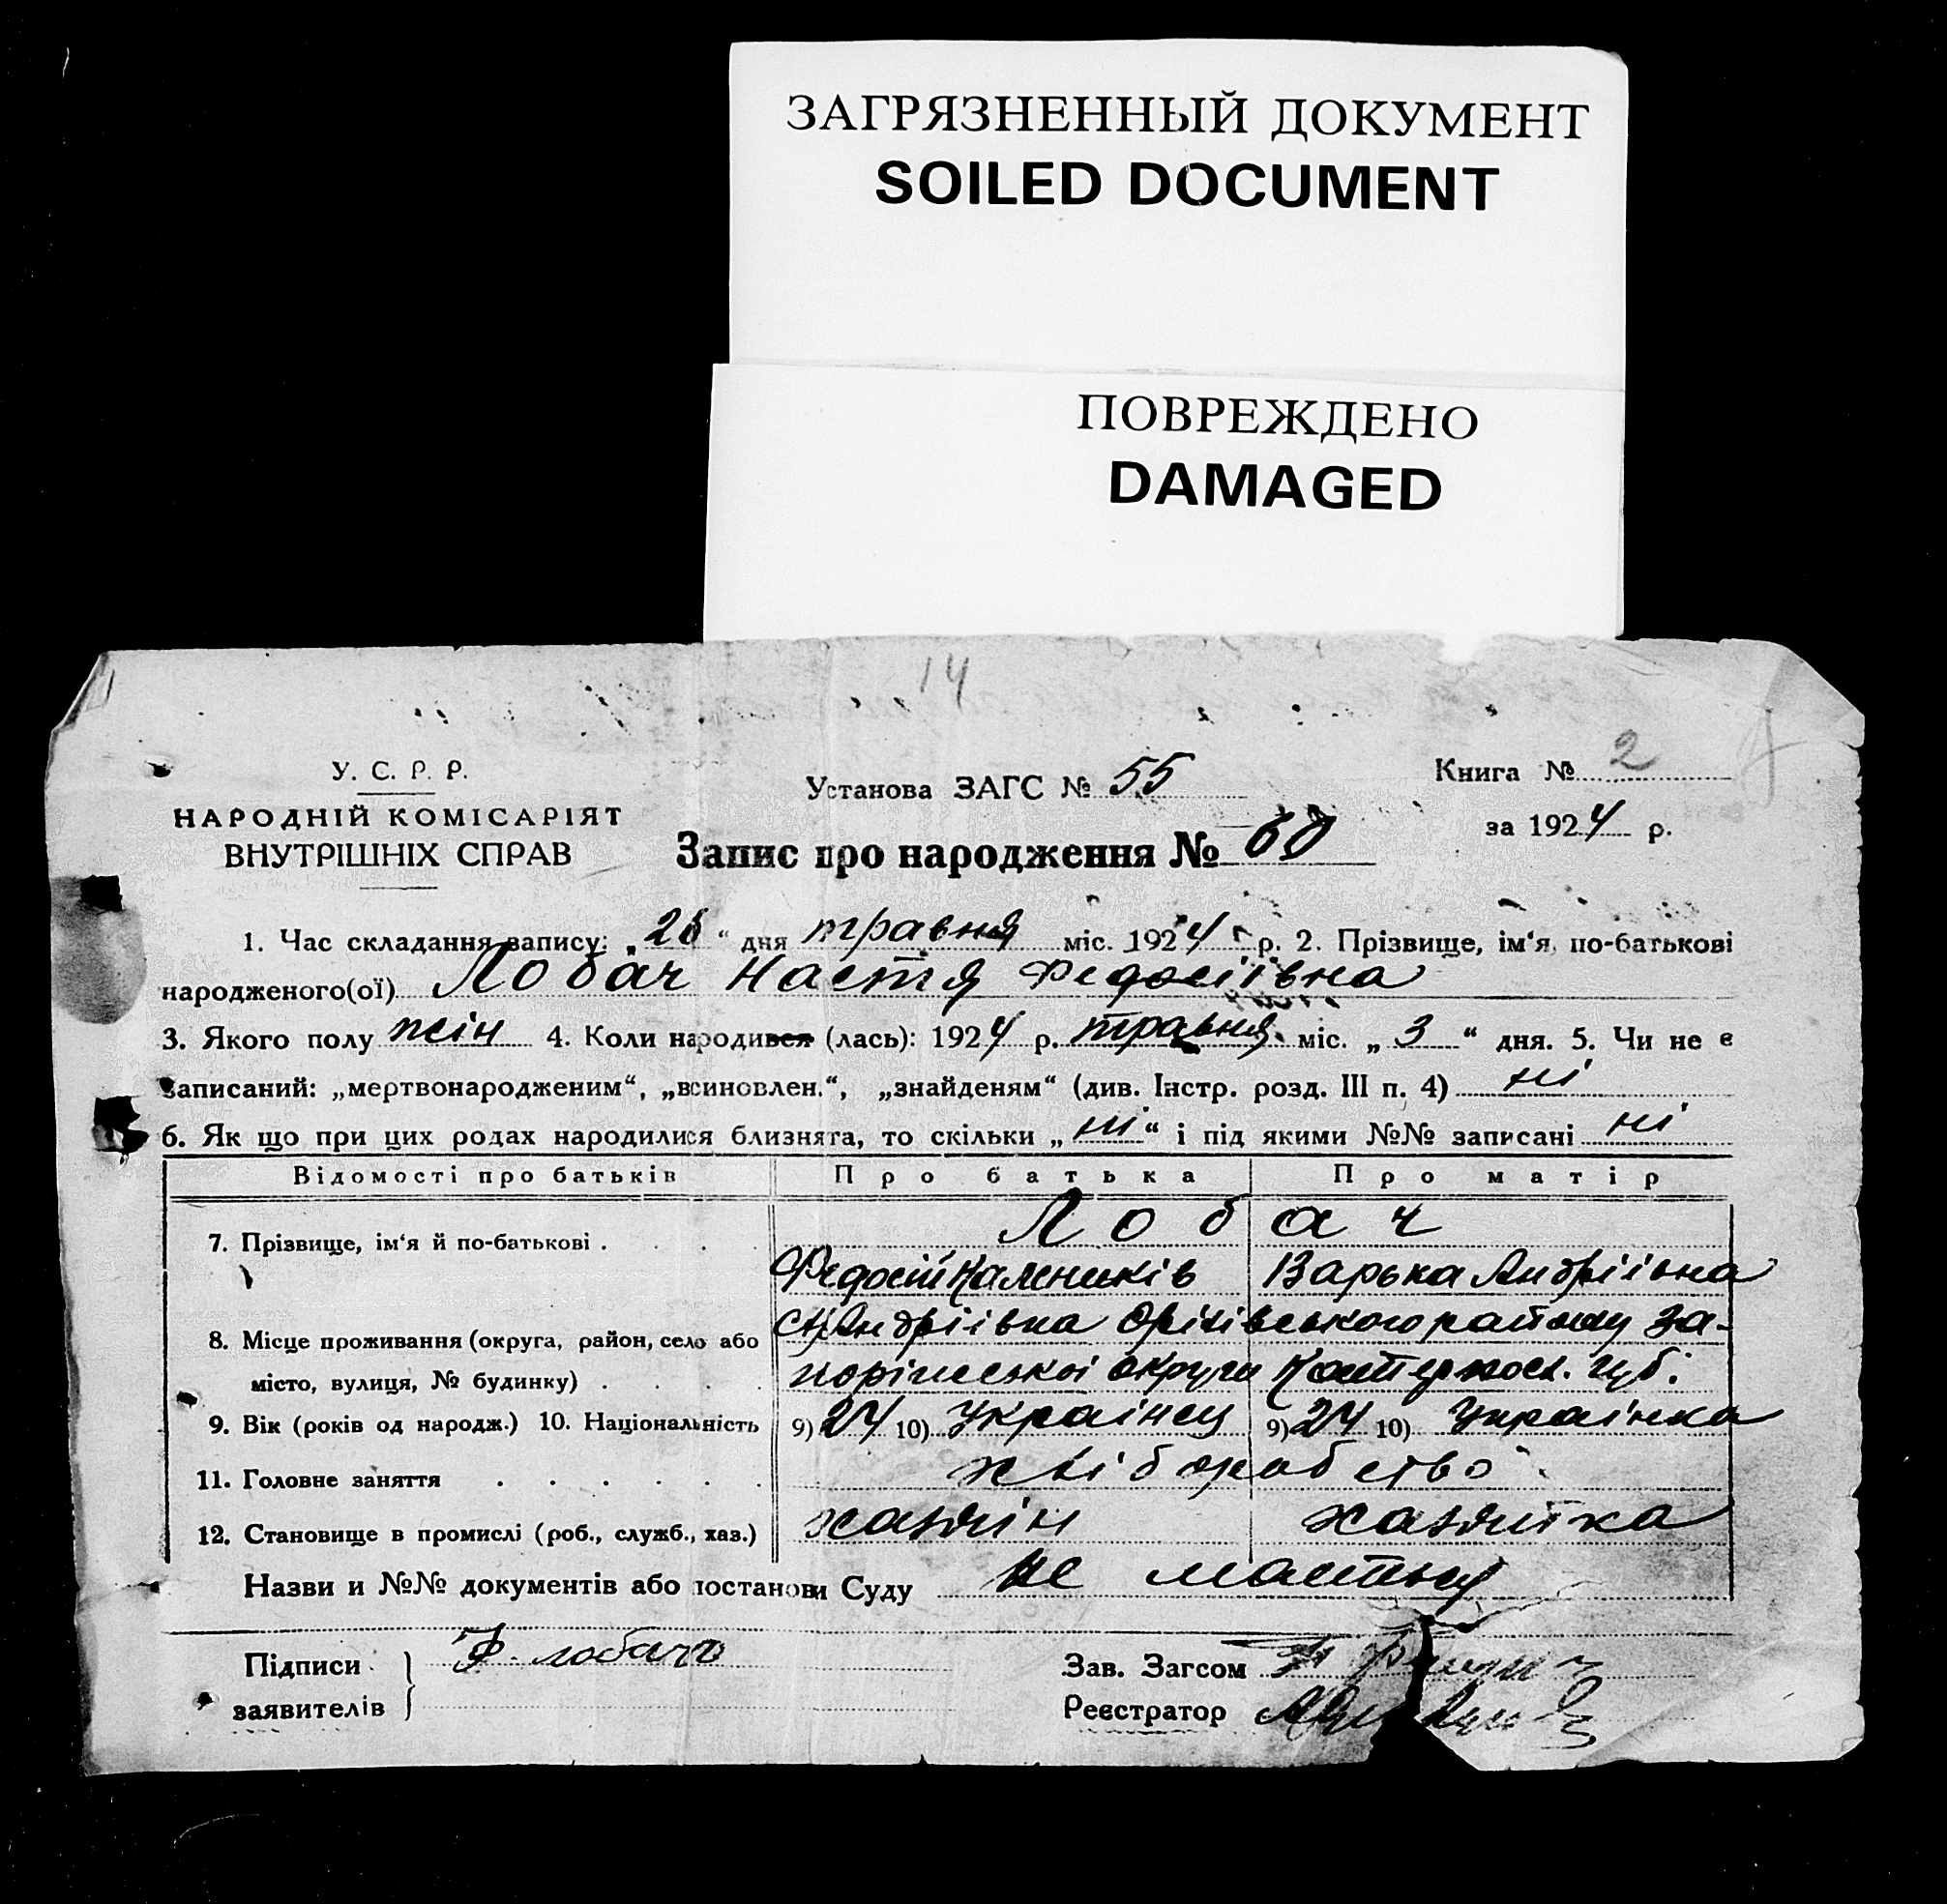 ЗАГРЯЗНЕННЫЙ ДОКУМЕНТ
SOILED DOCUMENT
ПОВРЕЖДЕНО
DAMAGED
14
У. С. Р. Р.
НАРОДНІЙ КОМІСАРІЯТ
ВНУТРІШНІХ СПРАВ
Установа ЗАГС № 55
Книга № 2
за 1924 р.
Запис про народження № 60
1. Час складання запису: „ “ дня травня міс. 1924 р. 2. Прізвище, ім‘я, по-батькові
народженого(ої) Лобач Настя Федосіївна
3. Якого полу жін 4. Коли народився (лась): 1924 р. травня міс. „ 3 “ дня. 5. Чи не є
записаний: „мертвонародженим“, „всиновлен.“, „знайденям“ (див. Інстр. розд. III п. 4) ні
6. Як що при цих родах народилися близнята, то скільки „ ні “ і під якими №№ записані ні
Відомості про батьків Про батька Про матір
7. Прізвище, ім‘я й по-батькові . . . . Лобач
Федосій Калеників Варька Андріївна
8. Місце проживання (округа, район, село або с. Андріївка Оріхівського району За-
місто, вулиця, № будинку) . . . . поріжської округи Катериносл. губ.
9. Вік (років од народж.) 10. Національність 9) 24 10) Українец 9) 24 10) Українка
11. Головне заняття . . . . . . хліборобство
12. Становище в промислі (роб., служб., хаз.) хазяїн хазяйка
Назви и №№ документів або постанови Суду не
Підписи
заявителів
Ф. Лобачъ
Зав. Загсом
Реєстратор